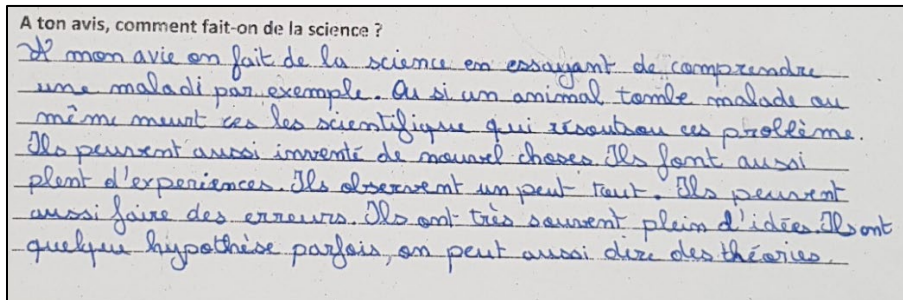 A ton avis, comment fait-on de la science ?
A mon avie on fait de la science en essayant de comprendre
une maladi par exemple. Ou si un animal tombe malade ou
même meurt ces les scientifique qui résoutsou ces problème.
Ils peuvent aussi inventé de nouvel choses. Ils font aussi
plent d'experiences. Ils observent un peut tout. Ils peuvent
aussi faire des erreurs. Ils ont très souvent plein d'idées. Ils ont
quelque hypothèse parfois, on peut aussi dire des théories.